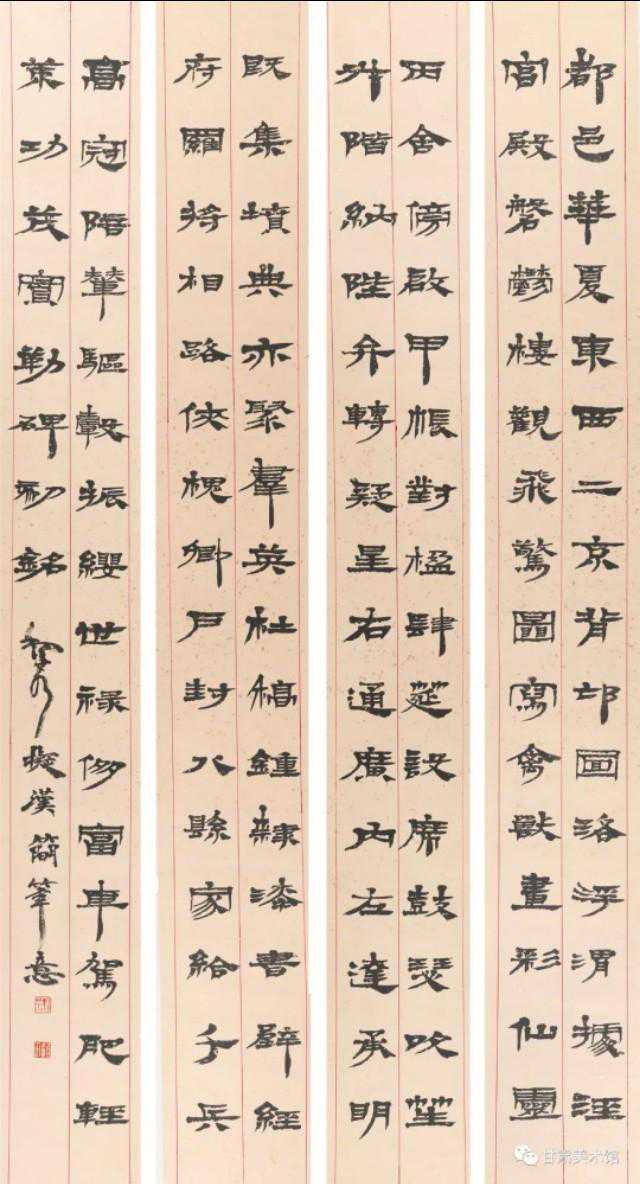 都邑華夏東西二京背邙面洛浮渭據涇
宮殿磐鬱樓觀飛驚圖寫禽獸畫彩仙靈
丙舍傍啟甲帳對楹肆筵設席鼓瑟吹笙
升階納陛弁轉疑星右通廣內左達承明
既集墳典亦聚羣英杜稿鍾隸漆書壁經
府羅將相路俠槐卿戶封八縣家給千兵
高冠陪輦驅轂振纓世祿侈富車駕肥輕
策功茂實勒碑刻銘
黎泉擬漢簡筆意
甘肃美术馆